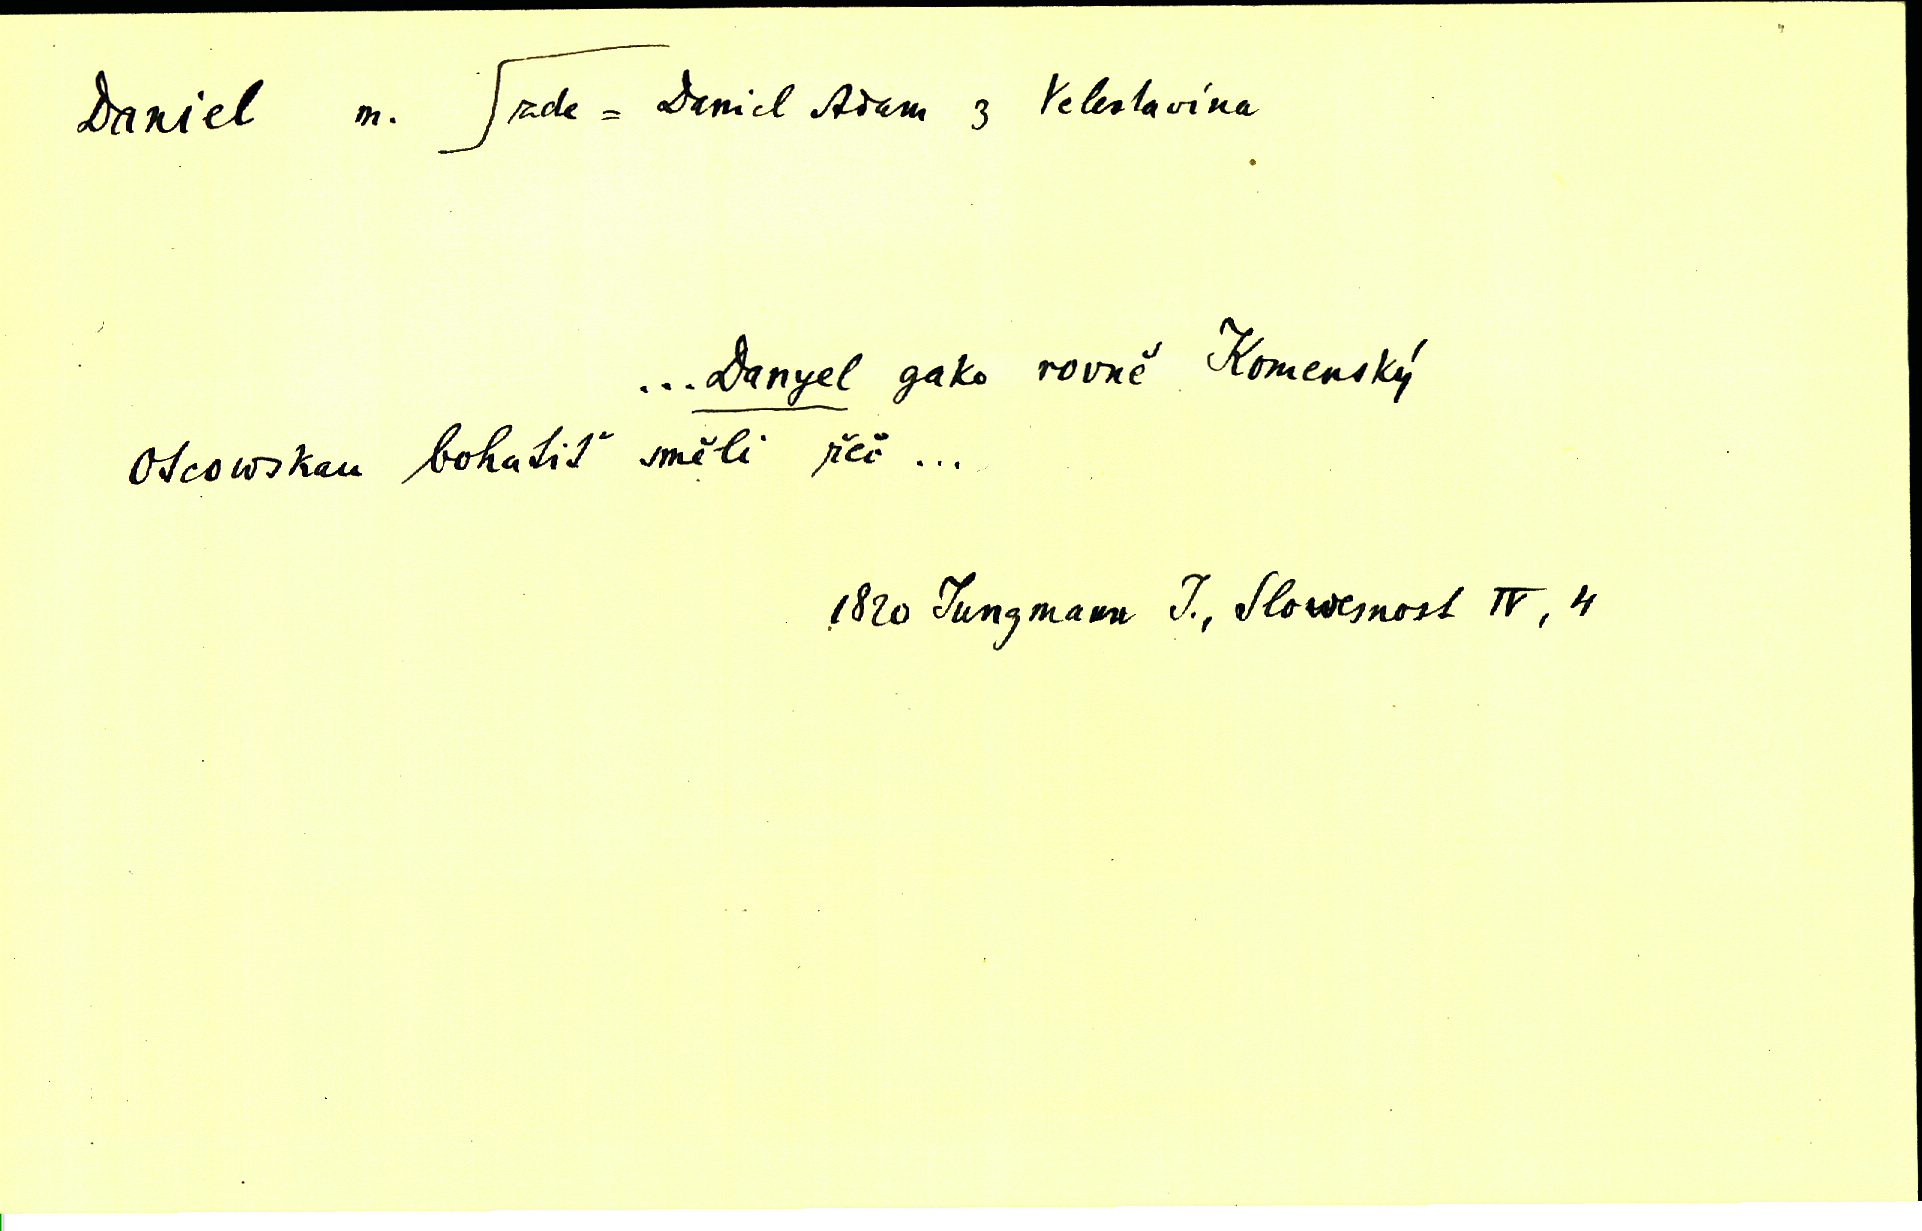 Daniel m. zde = Daniel Adam z Veleslavína
...Danyel gako rovně Komenský
Otcowskau bohatiť směli řeč ...
1820 Jungmann J., Slowesnost IV, 4